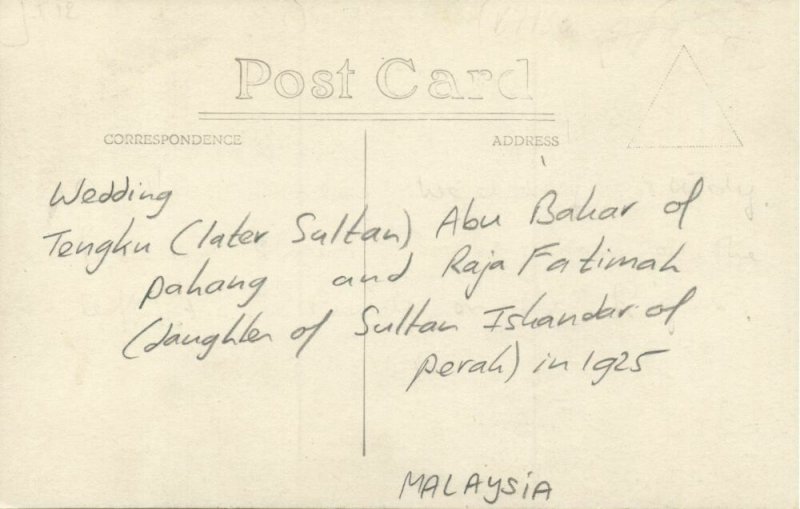 Post Card
CORRESPONDENCE
ADDRESS
Wedding
Tengku (later Sultan) Abu Bakar of
pahang and Raja Fatimah
(daughter of Sultan Iskandar of
perak) in 1925
MALAYSIA